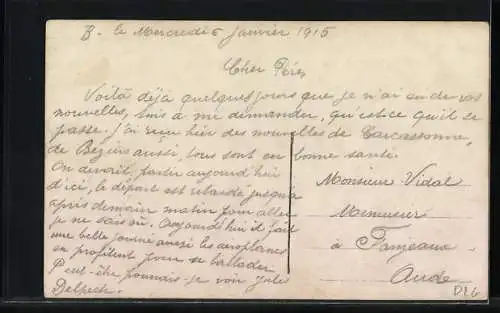 B. le Mercredi 6 Janvier 1915
Cher Père,
Voilà déjà quelques jours que je n'ai eu de vos
nouvelles, suis à me demander, qu'est ce qu'il se
passe. J'ai reçu hier des nouvelles de Carcassonne,
de Beziers aussi, tous sont en bonne santé.
On devait partir aujourd'hui
d'ici, le départ est retardé jusqu'a
après demain matin pour aller
je ne sais où. Aujourd'hui il fait
une belle journée aussi les aeroplanes
en profitent pour se ballader
Peut-être pourrais-je voir Jules
Delpech.
Monsieur Vidal
Menuisier
à Fanjeaux
Aude
D26